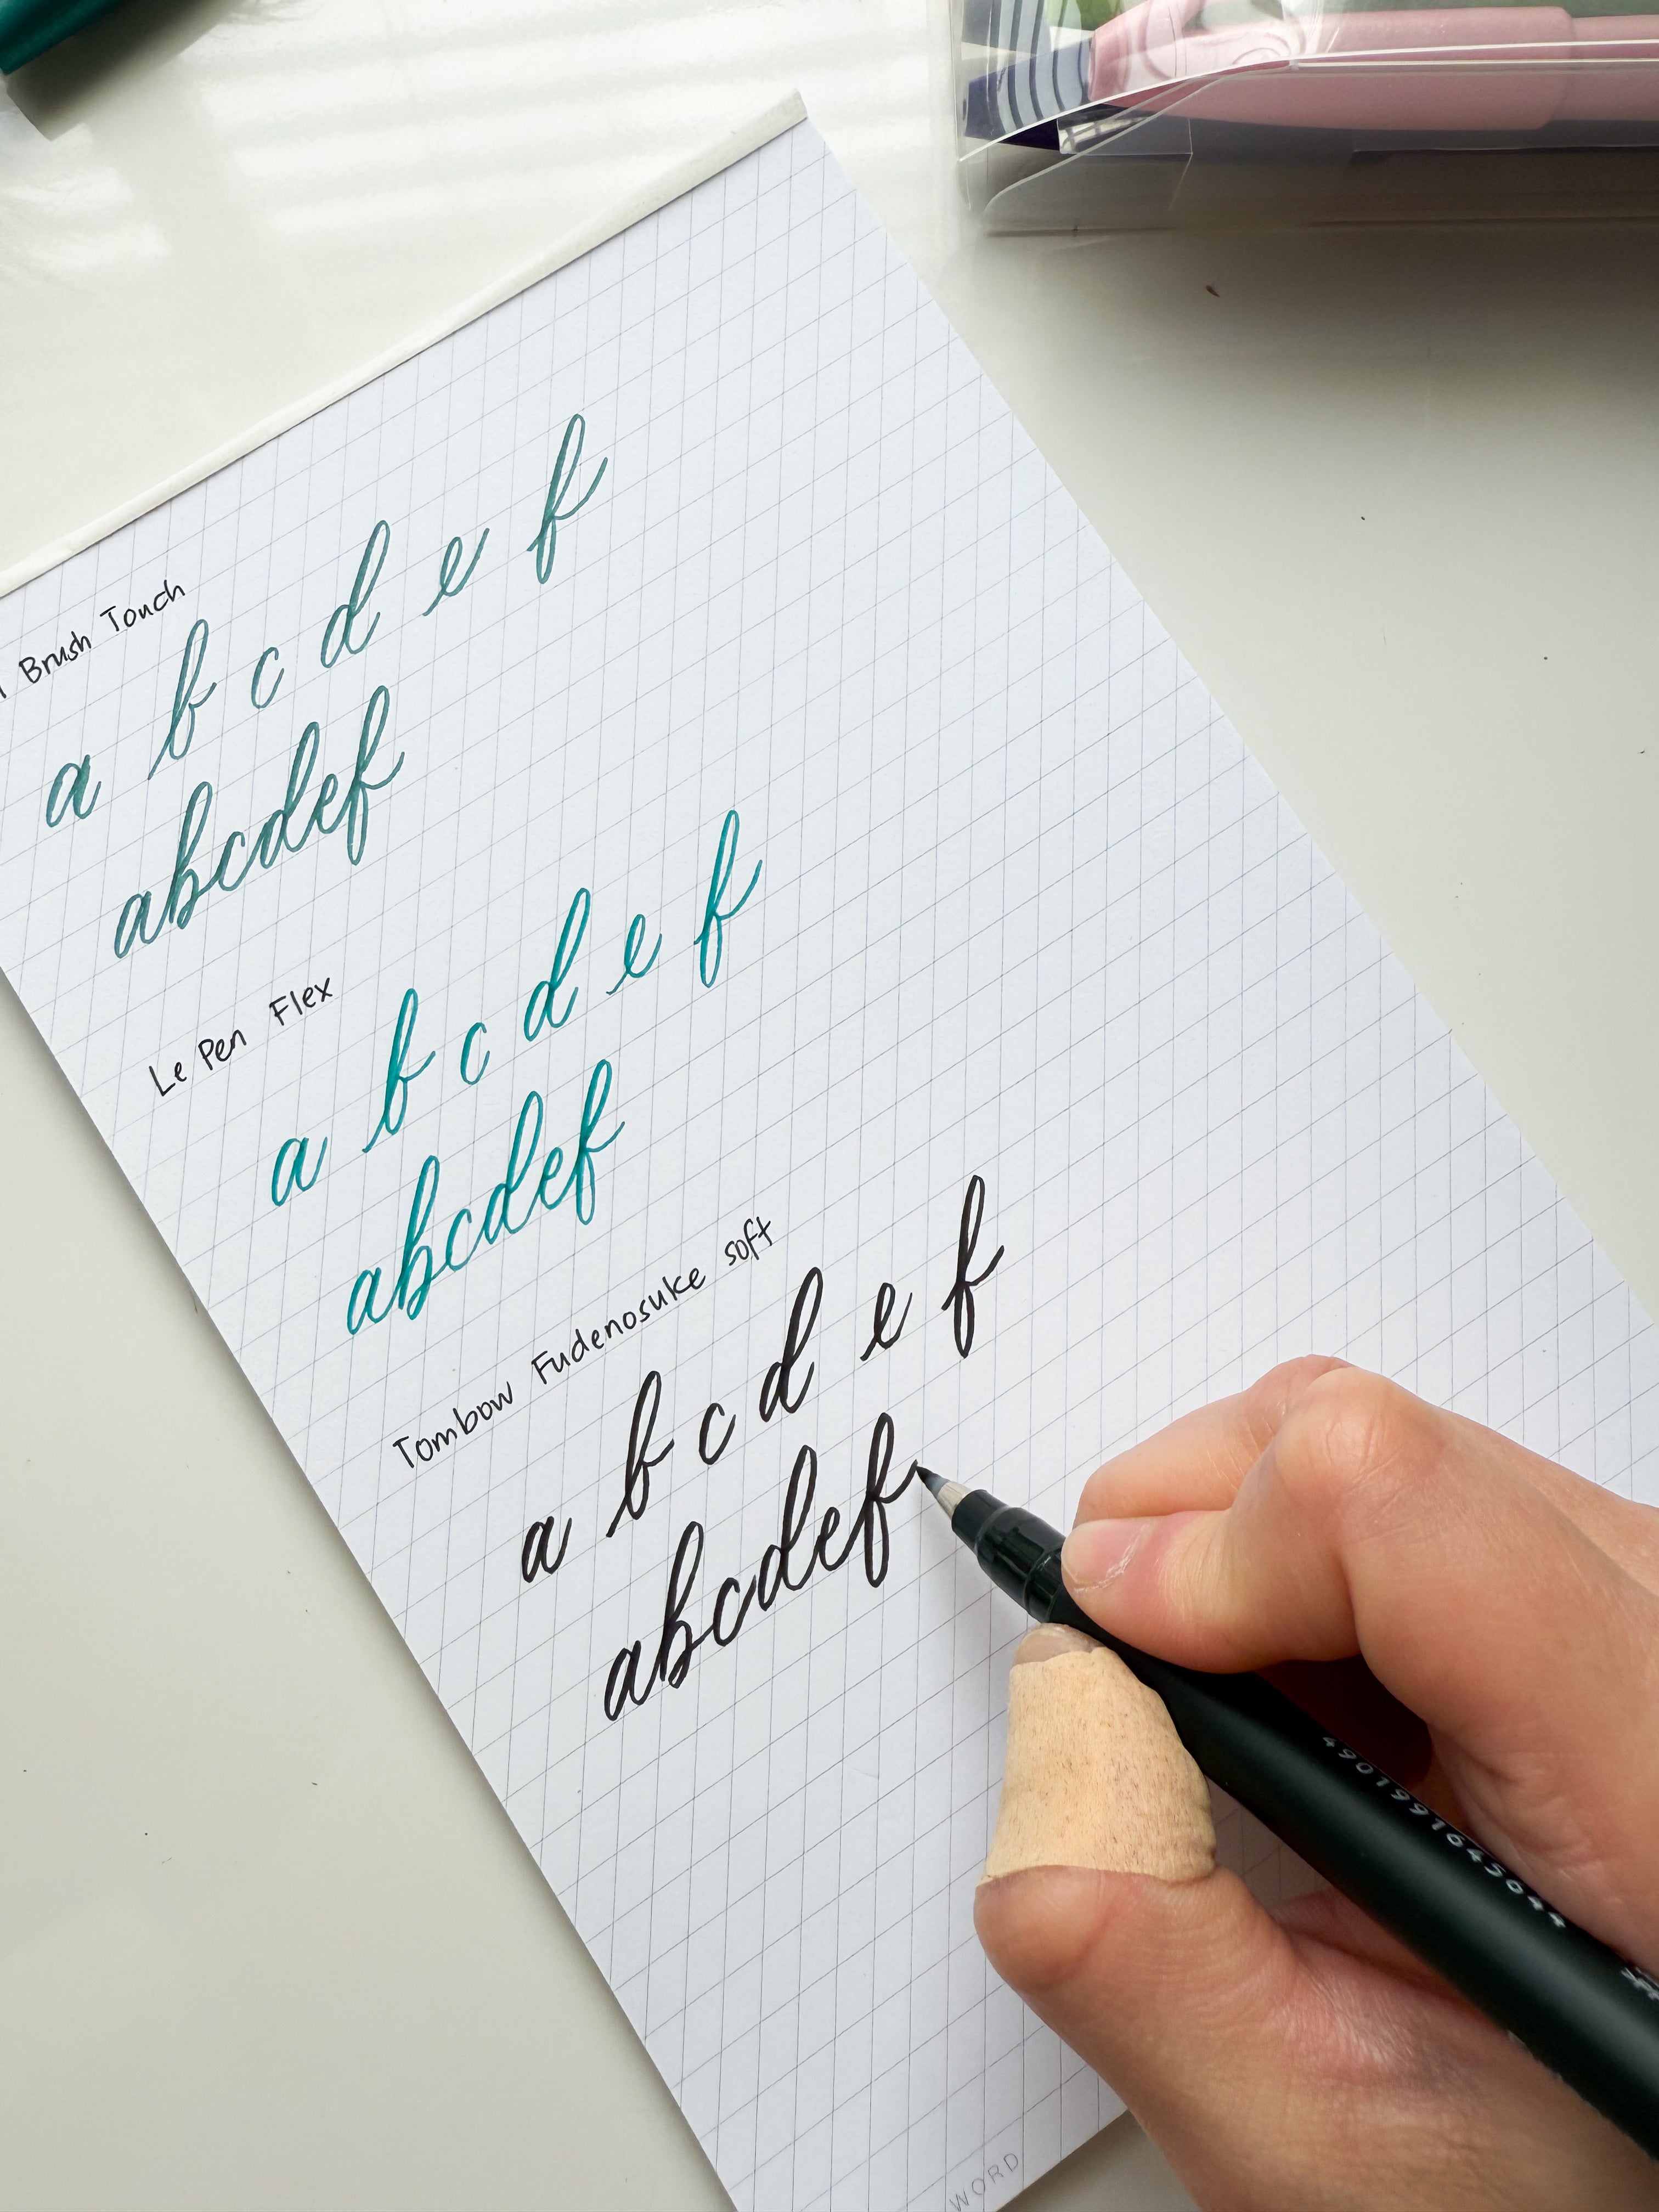 Brush Touch
a b c d e f
abcdef
Le Pen Flex
a b c d e f
abcdef
Tombow Fudenosuke soft
a b c d e f
abcdef
4901991645044
WORD